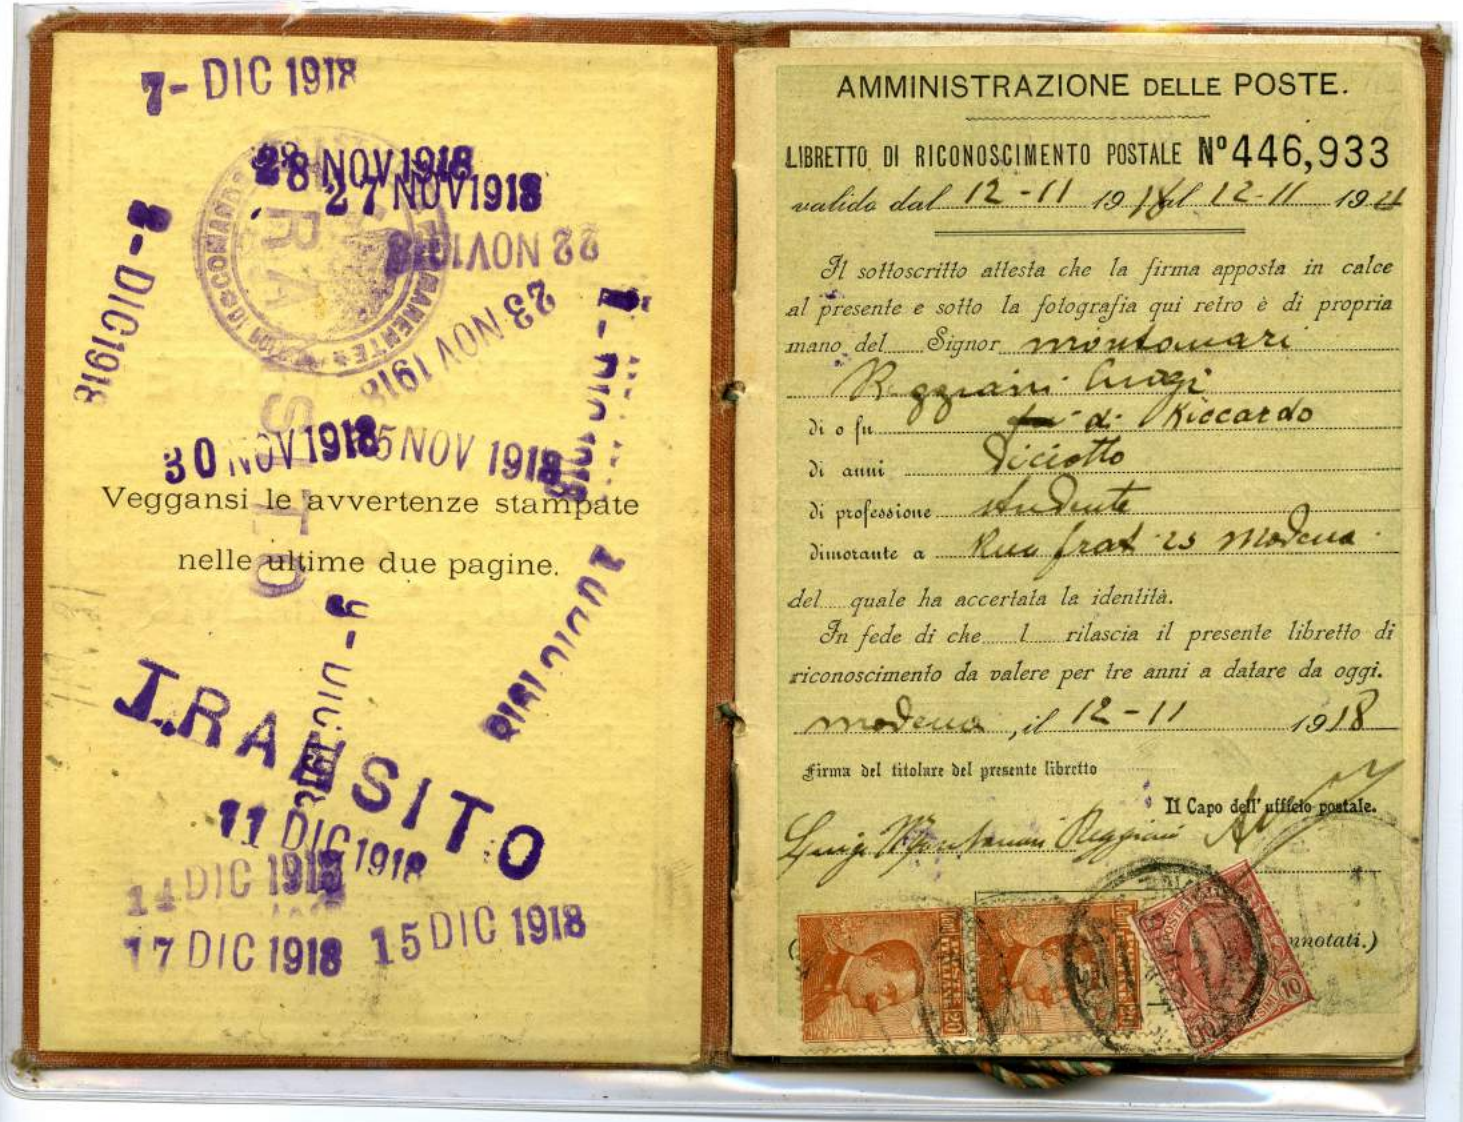 7- DIC 1918
28 NOV 1918
27 NOV 1918
22 NOV 1918
23 NOV 1918
- DIC 1918
30 NOV 1918
5 NOV 1918
Veggansi le avvertenze stampate
nelle ultime due pagine.
TRANSITO
11 DIC 1918
14 DIC 1918
17 DIC 1918
15 DIC 1918
AMMINISTRAZIONE DELLE POSTE.
LIBRETTO DI RICONOSCIMENTO POSTALE Nº 446,933
valido dal 12-11 1918 al 12-11 1921
Il sottoscritto attesta che la firma apposta in calce
al presente e sotto la fotografia qui retro è di propria
mano del Signor Montanari
Reggiani Luigi
di o fu di Riccardo
di anni Diciotto
di professione Studente
dimorante a Rua frat 23 Modena
del quale ha accertata la identità.
In fede di che l rilascia il presente libretto di
riconoscimento da valere per tre anni a datare da oggi.
Modena, il 12-11 1918
Firma del titolare del presente libretto
Il Capo dell'ufficio postale.
Luigi Montanari Reggiani
nnotati.)
10
10